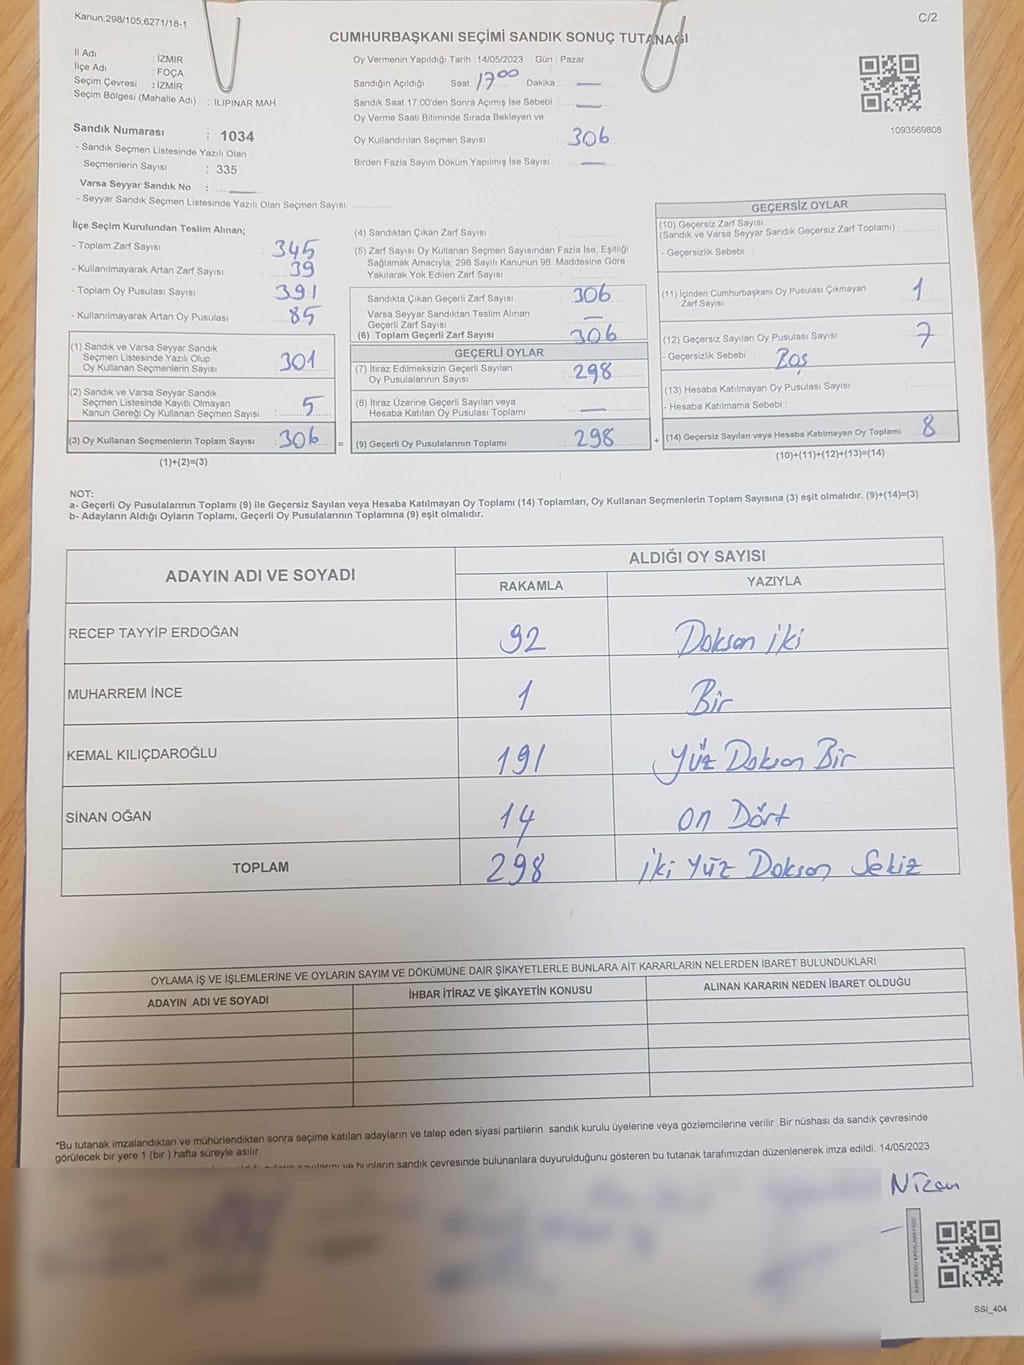 Kanun;298/105;6271/18-1
C/2
CUMHURBAŞKANI SEÇİMİ SANDIK SONUÇ TUTANAĞI
İl Adı : İZMİR
İlçe Adı : FOÇA
Seçim Çevresi : İZMİR
Seçim Bölgesi (Mahalle Adı) : ILIPINAR MAH.
Sandık Numarası : 1034
- Sandık Seçmen Listesinde Yazılı Olan
Seçmenlerin Sayısı : 335
Varsa Seyyar Sandık No :
- Seyyar Sandık Seçmen Listesinde Yazılı Olan Seçmen Sayısı:
Oy Vermenin Yapıldığı Tarih : 14/05/2023 Gün : Pazar
Sandığın Açıldığı Saat 17⁰⁰ Dakika : —
Sandık Saat 17:00'den Sonra Açımış İse Sebebi : —
Oy Verme Saati Bitiminde Sırada Bekleyen ve
Oy Kullandırılan Seçmen Sayısı : 306
Birden Fazla Sayım Döküm Yapılmış İse Sayısı : —
1093569808
İlçe Seçim Kurulundan Teslim Alınan;
- Toplam Zarf Sayısı : 345
- Kullanılmayarak Artan Zarf Sayısı : 39
- Toplam Oy Pusulası Sayısı : 391
- Kullanılmayarak Artan Oy Pusulası : 85
(1) Sandık ve Varsa Seyyar Sandık
Seçmen Listesinde Yazılı Olup
Oy Kullanan Seçmenlerin Sayısı : 301
(2) Sandık ve Varsa Seyyar Sandık
Seçmen Listesinde Kayıtlı Olmayan
Kanun Gereği Oy Kullanan Seçmen Sayısı : 5
(3) Oy Kullanan Seçmenlerin Toplam Sayısı : 306 =
(1)+(2)=(3)
(4) Sandıktan Çıkan Zarf Sayısı :
(5) Zarf Sayısı Oy Kullanan Seçmen Sayısından Fazla İse, Eşitliği
Sağlamak Amacıyla; 298 Sayılı Kanunun 98. Maddesine Göre
Yakılarak Yok Edilen Zarf Sayısı :
Sandıkta Çıkan Geçerli Zarf Sayısı : 306
Varsa Seyyar Sandıktan Teslim Alınan
Geçerli Zarf Sayısı : —
(6) Toplam Geçerli Zarf Sayısı : 306
GEÇERLİ OYLAR
(7) İtiraz Edilmeksizin Geçerli Sayılan
Oy Pusulalarının Sayısı : 298
(8) İtiraz Üzerine Geçerli Sayılan veya
Hesaba Katılan Oy Pusulası Toplamı : —
(9) Geçerli Oy Pusulalarının Toplamı : 298 +
GEÇERSİZ OYLAR
(10) Geçersiz Zarf Sayısı
(Sandık ve Varsa Seyyar Sandık Geçersiz Zarf Toplamı) :
- Geçersizlik Sebebi :
(11) İçinden Cumhurbaşkanı Oy Pusulası Çıkmayan
Zarf Sayısı : 1
(12) Geçersiz Sayılan Oy Pusulası Sayısı : 7
- Geçersizlik Sebebi : Boş
(13) Hesaba Katılmayan Oy Pusulası Sayısı :
- Hesaba Katılmama Sebebi :
(14) Geçersiz Sayılan veya Hesaba Katılmayan Oy Toplamı 8
(10)+(11)+(12)+(13)=(14)
NOT:
a- Geçerli Oy Pusulalarının Toplamı (9) ile Geçersiz Sayılan veya Hesaba Katılmayan Oy Toplamı (14) Toplamları, Oy Kullanan Seçmenlerin Toplam Sayısına (3) eşit olmalıdır. (9)+(14)=(3)
b- Adayların Aldığı Oyların Toplamı, Geçerli Oy Pusulalarının Toplamına (9) eşit olmalıdır.
ADAYIN ADI VE SOYADI
ALDIĞI OY SAYISI
RAKAMLA YAZIYLA
RECEP TAYYİP ERDOĞAN 92 Doksan iki
MUHARREM İNCE 1 Bir
KEMAL KILIÇDAROĞLU 191 Yüz Doksan Bir
SİNAN OĞAN 14 on Dört
TOPLAM 298 iki Yüz Doksan Sekiz
OYLAMA İŞ VE İŞLEMLERİNE VE OYLARIN SAYIM VE DÖKÜMÜNE DAİR ŞİKAYETLERLE BUNLARA AİT KARARLARIN NELERDEN İBARET BULUNDUKLARI
ADAYIN ADI VE SOYADI İHBAR İTİRAZ VE ŞİKAYETİN KONUSU ALINAN KARARIN NEDEN İBARET OLDUĞU
*Bu tutanak imzalandıktan ve mühürlendikten sonra seçime katılan adayların ve talep eden siyasi partilerin sandık kurulu üyelerine veya gözlemcilerine verilir .Bir nüshası da sandık çevresinde
görülecek bir yere 1 (bir ) hafta süreyle asılır.
ve bunların sandık çevresinde bulunanlara duyurulduğunu gösteren bu tutanak tarafımızdan düzenlenerek imza edildi. 14/05/2023
Nizan
SSI_404